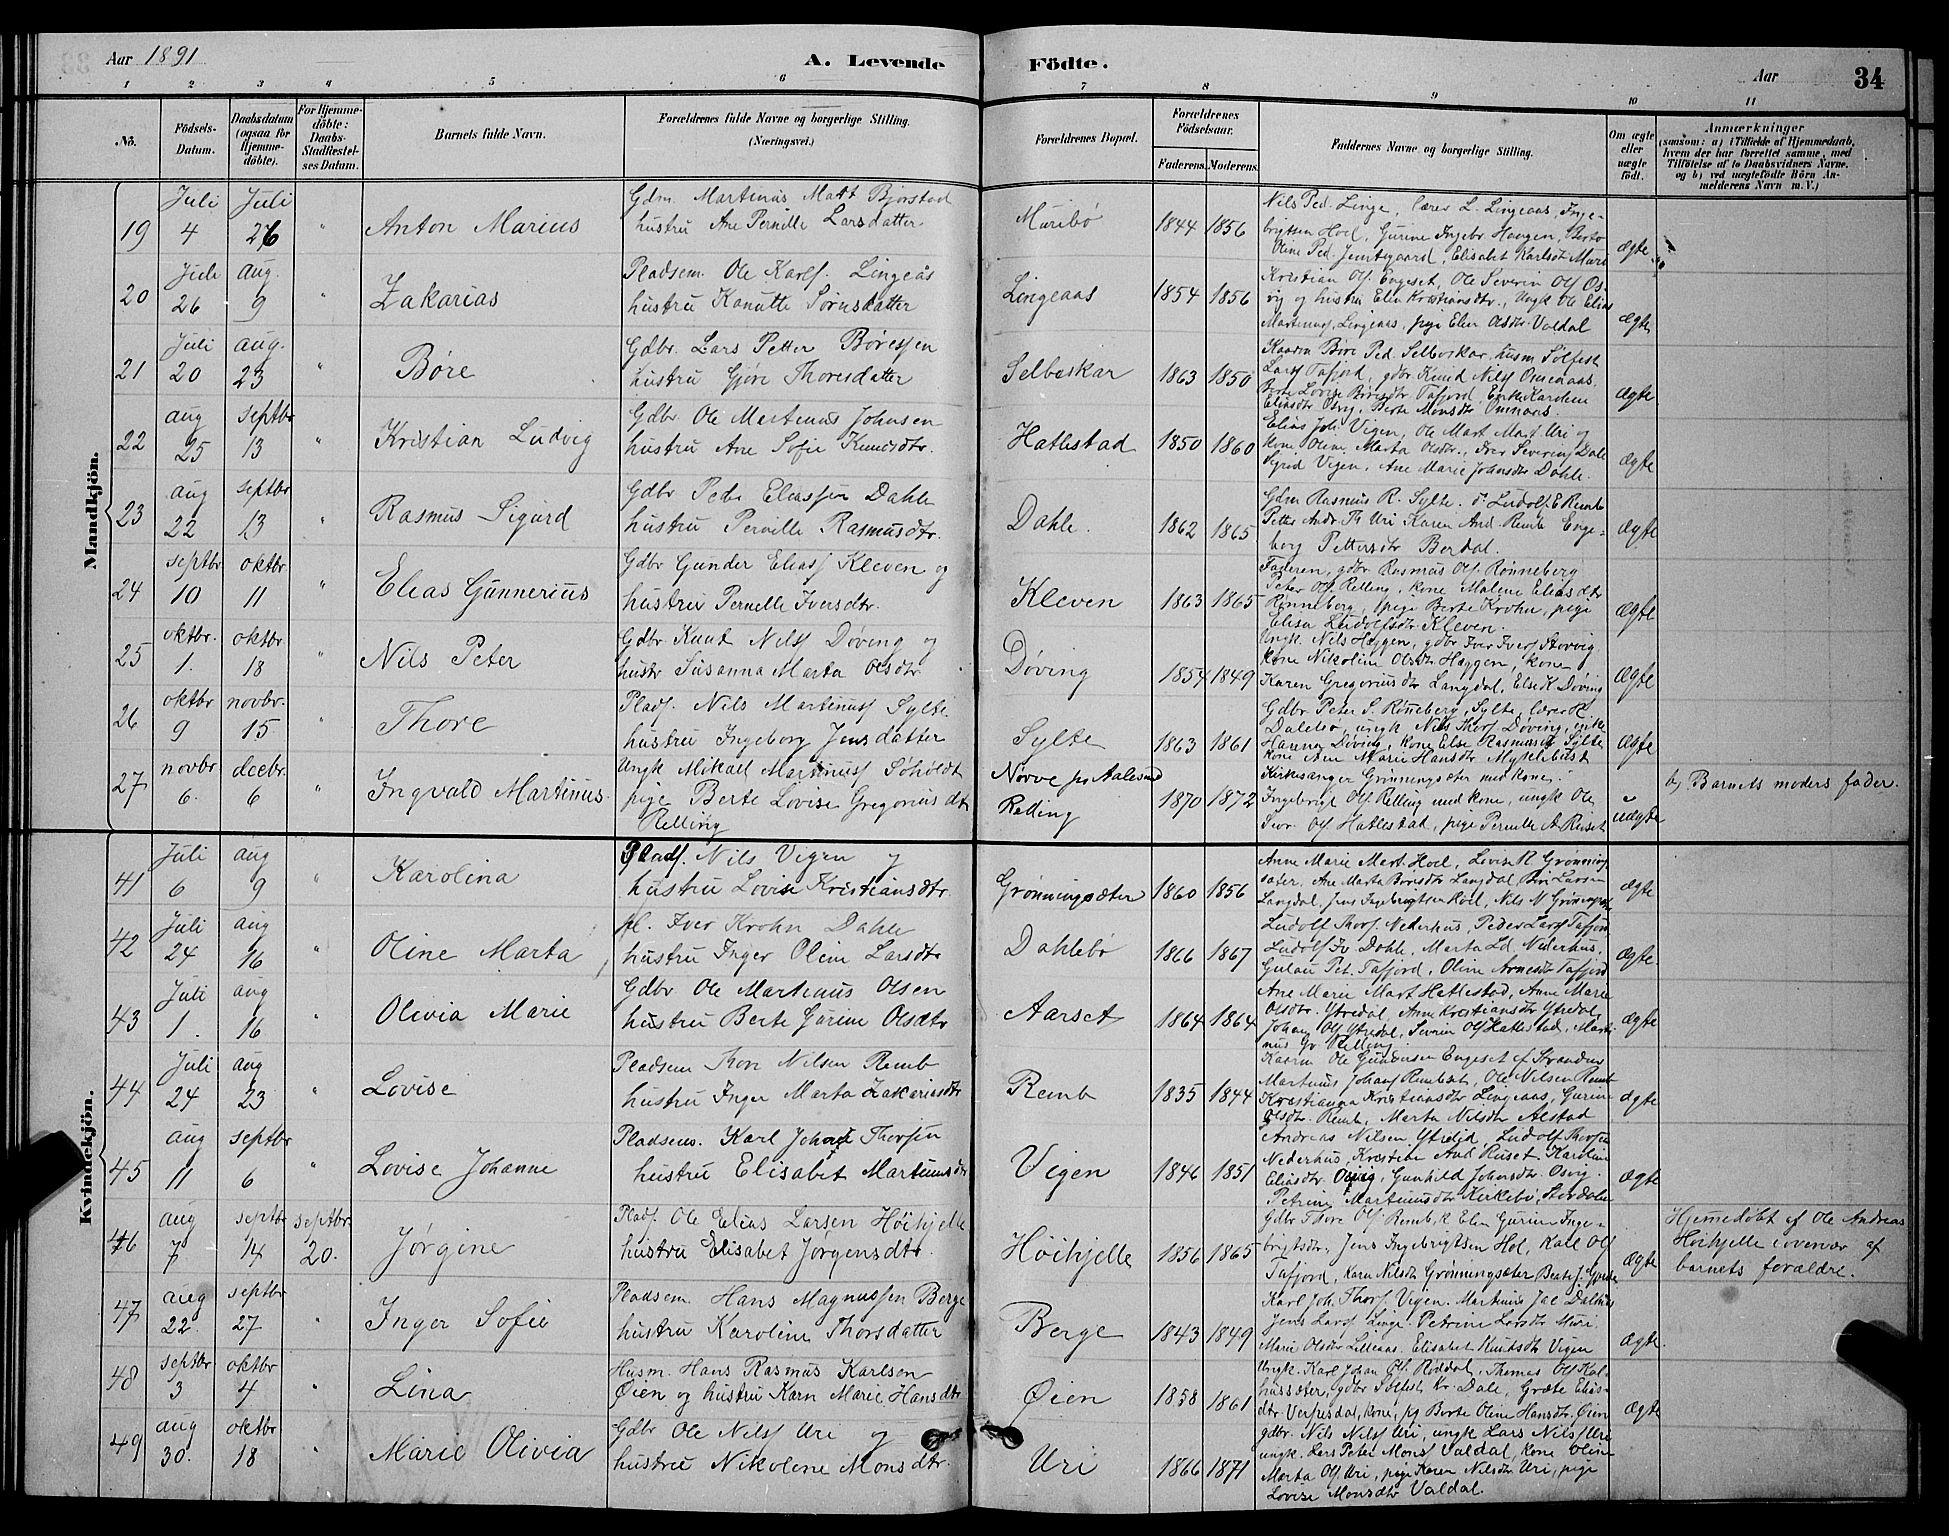 Aar 1891
A. Levende Födte.
Aar
34
1 2 3 4 5 6 7 8 9 10 11
No.
Födsels-Datum.
Daabsdatum (ogsaa for Hjemme-döbte).
For Hjemme-döbte: Daabs-Stadfæstel-ses Datum.
Barnets fulde Navn.
Forældrenes fulde Navne og borgerlige Stilling.
(Næringsvei.)
Forældrenes Bopæl.
Forældrenes Födselsaar.
Faderens. Moderens.
Faddernes Navne og borgerlige Stilling.
Om ægte eller uægte födt.
Anmærkninger
(saasom: a) i Tilfælde af Hjemmedaab,
hvem der har forrettet samme, med
Tilföielse af to Daabsvidners Navne.
og b) ved uægtefödte Börn An-
melderens Navn m. V.)
Mandkjön.
19 Juli 4 Juli 26 " Anton Marius
Gdm. Martinus Matt Bjorstad
hustru Ane Pernille Larsdatter
Muribö 1844 1856
Nils Ped. Linge, lærer L. Lingeaas, Inge-
brigtsen Hoel, Gurine Ingebr. Haugen, Berte
Oline Ped. Jemtegaard, Elisabet Karlsdt Muri
ægte
20 Juli 26 aug. 9 " Zakarias
Pladsem. Ole Karls. Lingeås
hustru Kanutte Sörnsdatter
Lingeaas 1854 1856
Kristian Ols. Engeset, Ole Severin Ols Os-
vig og hustru Elen Kristiansdtr., Ungk Ole Elias
Martinus. Lingeaas, pige Elen Olsdtr. Valdal
ægte
21 Juli 20 aug. 23 " Böre
Gdbr. Lars Petter Böressen
hustru Gjöre Thoresdatter
Selboskar 1863 1850
Kaarm Böre Ped. Selboskar, husm Sölfest
Lars Tafjord, gdbr Knud Nils Omenaas.
Berte Lovise Böresdtr Tafjord, Enke Karoline
Eliasdtr Osvig, Berte Monsdtr Omnaas.
ægte
22 aug 25 septbr 13 " Kristian Ludvig
Gdbr. Ole Martinus Johnsen
hustru Ane Sofie Knudsdtr.
Hatlestad 1850 1860
Elias Joh. Vigen, Ole Mart Mart. Uri og
kone Oline Marta Olsdtr., Iver Severins Dale
Sigrid Vigen, Ane Marie Johnsdtr Dahle.
ægte
23 aug 22 septbr 13 " Rasmus Sigurd
Gdbr Peder Eliassen Dahle
hustru Pernille Rasmusdtr.
Dahle. 1862 1865
Gdm Rasmus R. Sylte. do Ludolf E Remb
Petter Andr Th Uri Karen And. Remb Enge-
borg Pettersdtr Berdal.
ægte
24 septbr 10 oktbr. 11 " Elias Gunnerius
Gdbr Gunder Elias. Kleven og
hustru Pernelle Iversdtr.
Kleven 1863 1865
Faderen, gdbr Rasmus Ols. Rönneberg
Peter Ols. Relling, kone Malene Eliasdtr
Rönneberg, pige Berte Krohn, pige
Elisa Ludolfsdtr Kleven.
ægte
25 oktbr. 1. oktbr. 18 " Nils Peter
Gdbr Knud Nils Döving og
hustr Susanna Marta Olsdtr
Döving 1854 1849
Ungk. Nils Hæggen, gdbr Iver Ivers Storvig
kone Nikoline Olsdtr Hæggen, kone
Karen Gregoriusdtr Langdal, Else K Döving
ægte
26 oktbr 9 novbr. 15 " Thore
Plads. Nils Martinus Sylte.
hustru Ingeborg Jensdatter
Sylte 1863 1861
Gdbr Peter S. Rönneberg, Sylte, lærer R
Dalebö, ungk Nils Thors Döving, enke
Hanna Döving, kone Else Rasmusdtr Sylte
kone Ane Marie Hansdtr Myklebust
ægte
27 novbr 6. decbr. 6 " Ingvald Martinus.
Ungk Mikael Martinus Söholdt
pige Berte Lovise Gregoriusdtr
Relling
Nörve pr Aalesund
Relling 1870 1872
Kirkesanger Grönningsæter med kone.
Ingebrigt Ols. Relling med kone, ungk Ole
Sevr. Ols Hatlestad, pige Pernille A Ruset
uægte
b) Barnets moders fader.
Kvindekjön.
41 Juli 6 aug 9 " Karolina
Plads. Nils Vigen og
hustru Lovise Kristiansdtr.
Grönningsæter 1860 1856
Anne Marie Mart. Hoel, Lovise R Grönning
sæter, Ane Marta Böresdtr Langdal, Böre Larsen
Langdal, Jens Ingebrigtsen Hoel, Nils N Grönningsæ
ægte
42 Juli 24 aug 16 " Oline Marta
pl. Iver Krohn Dahle
hustru Inger Oline Larsdtr
Dahlebö 1866 1867
Ludolf Thors. Nederhus, Peder Lars Tafjor
Ludolf Iv Dahle, Marta Ld. Nederhus,
Gulau Pet. Tafjord, Oline Arnesdtr Tafjord
ægte.
43 Juli 1. aug 16 " Olivia Marie
Gdbr Ole Martinus Olsen
hustru Berte Gurine Olsdtr
Aarset 1864 1864
Ane Marie Mart Hatlestad, Anne Marie
Olsdtr. Ytredal, Anne Kristiansdtr Ytredal,
Johan Ols Ytredal, Sevrin Ols Hatlestad, Marti
nus Gr Relling.
ægte
44 Juli 24 aug 23 " Lovise
Pladsem Thore Nilsen Remb
hustru Inger Marta Zakariasdtr
Remb 1835 1844
Kaarm Ole Gundersen Engeset af Stranden
Martinus Johans Rembset, Ole Nilsen Remb
Kristianna Kristiansdtr Lingeaas, Gurine
Olsdtr. Remb, Marta Nilsdtr Alstad
ægte
45 aug 11 septbr 6 " Lovise Johanne
Pladsem. Karl Johan Thorsen
hustru Elisabet Martinusdtr
Vigen 1846 1851
Andreas Nilsen Ytrelid, Ludolf Thorsen
Nederhus, Kristen And Ruset Karoline
Eliasdtr. Osvig, Gunhild Johnsdtr Osvig.
Petrine Martinusdtr Kirkebö, Stordalen
ægte
46 aug 7 septbr 14 septbr. 20. Jørgine
Plads. Ole Elias Larsen Höihjelle
hustru Elisabet Jørgensdtr.
Höihjelle 1856 1865
Gdbr Thore Ols Remb, k Elen Gurine Inge-
brigtsdtr, Jens Ingebrigtsen Hol, Kall Ols
Tafjord, Karn Nilsdtr Grönningsæter
ægte
Hjemmedöbt af Ole Andreas
Höihjelle i overvær af
barnets forældre.
47 aug 22. septbr 27 " Inger Sofie
Pladsem. Hans Magnussen Berge
hustru Karoline Thorsdatter
Berge 1843 1849
Karl Joh. Thors. Vigen. Martinus Jac Dalhus
Jens Lars Linge. Petrine Larsdtr Muri
Marie Olsdtr Lilleaas. Elisabet Knudsdtr Vigen
ægte.
48 septbr 3 oktbr 4 " Lina
Husm. Hans Rasmus Karlsen
Øien og hustru Karn Marie Hansdtr
Øien 1858 1861
Ungk. Karl Johan Ols. Röddal, Thomas Ols Kol-
hussæter, gdbr Sölfest Kr. Dale, Græte Elias-
dtr. Verpesdal, kone, pg Berte Oline Hansdtr. Øien
ægte
49 aug 30. oktbr 18 " Marie Olivia
Gdbr Ole Nils Uri og
hustru Nikolene Monsdtr.
Uri 1866 1871
gdbr. Nils Nils Uri, ungk Lars Nils Uri
ungk. Lars Peter Mons Valdal, kone Oline
Marta Ols Uri, pige Karen Nilsdtr Uri, pige
Lovise Monsdtr Valdal.